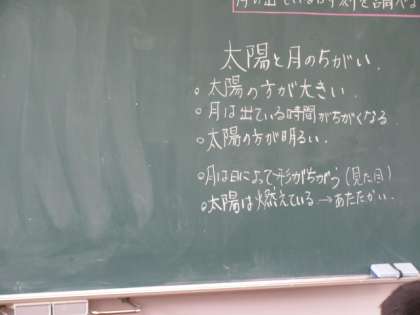 太陽と月のちがい.
○太陽の方が大きい.
○月は出ている時間がちがくなる.
○太陽の方が明るい.
○月は日によって形がちがう(見た目)
○太陽は燃えている→あたたかい.